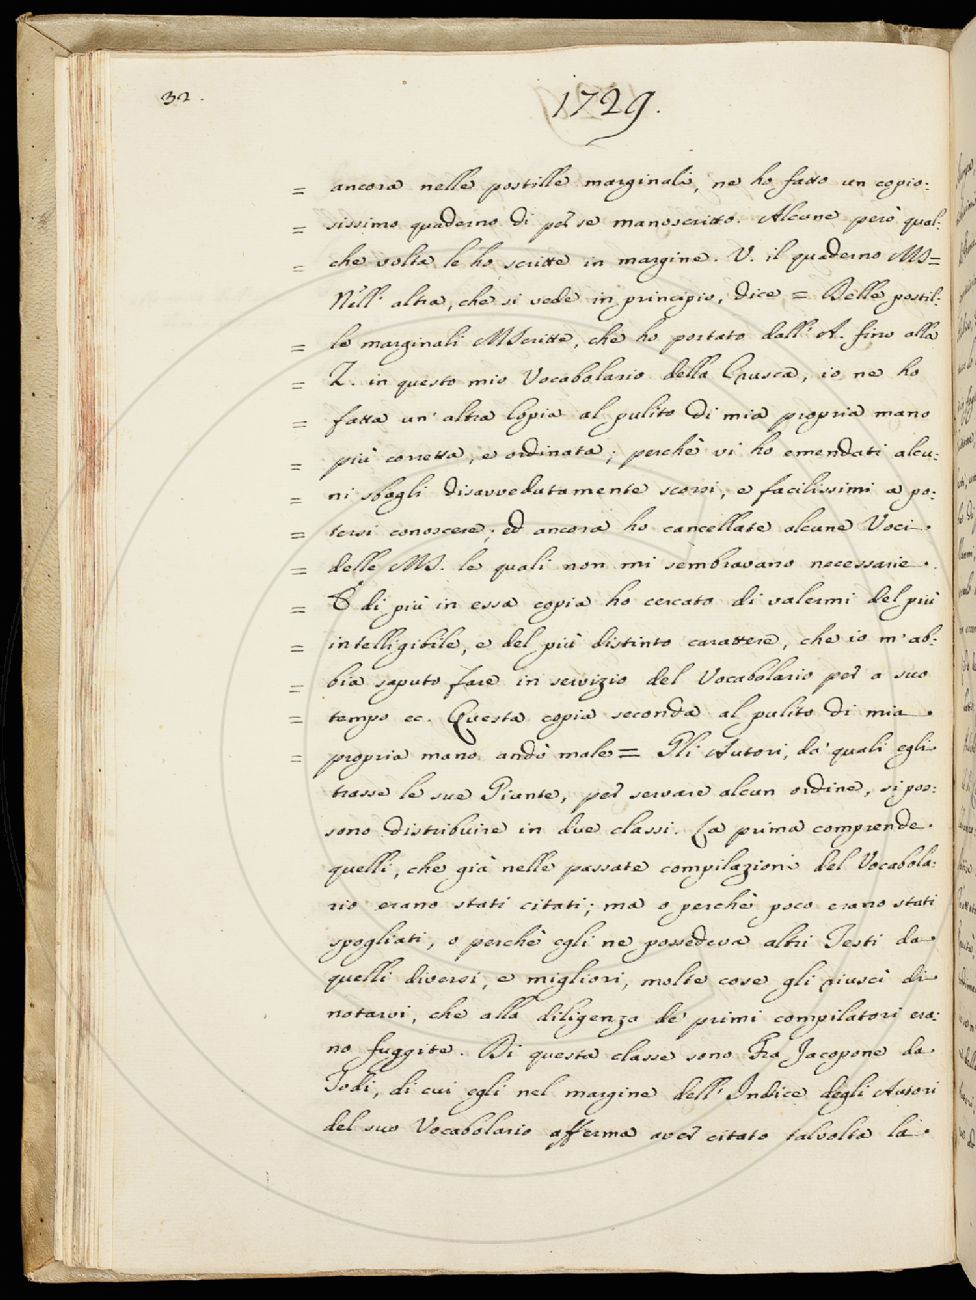 32.
1729.
= ancora nelle postille marginali, ne ho fatto un copio:
= sissimo quaderno di per se manoscritto. Alcune però qual:
= che volta le ho scritte in margine. V. il quaderno MS=
Nell' altra, che si vede in principio, dice = Delle postil:
= le marginali MScritte, che ho portato dall' A. fino alla
= Z. in questo mio Vocabolario della Crusca, io ne ho
= fatta un' altra Copia al pulito di mia propria mano
= più corretta, e ordinata; perchè vi ho emendati alcu:
= ni sbagli disavvedutamente scorsi, e facilissimi a po:
= tersi conoscere; ed ancora ho cancellate alcune Voci
= delle MS. le quali non mi sembravano necessarie.
= E di più in essa copia ho cercato di valermi del più
= intelligibile, e del più distinto carattere, che io m' ab:
= bia saputo fare in servizio del Vocabolario per a suo
= tempo ec. Questa copia seconda al pulito di mia
= propria mano andò male = Gli Autori, da' quali egli
trasse le sue Giunte, per servare alcun ordine, si pos:
sono distribuire in due classi. La prima comprende
quelli, che già nelle passate compilazioni del Vocabola:
rio erano stati citati; ma o perchè poco erano stati
spogliati, o perchè egli ne possedeva altri Testi da
quelli diversi, e migliori, molte cose gli riuscì di
notarvi, che alla diligenza de' primi compilatori era:
no fuggite. Di questa classe sono Fra Jacopone da
Todi, di cui egli nel margine dell' Indice degli Autori
del suo Vocabolario afferma aver citato talvolta la